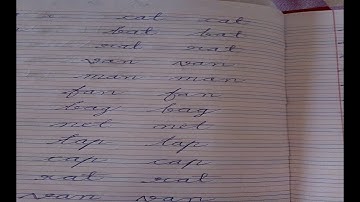 cat cat
bat bat
rat rat
van van
man man
fan fan
bag bag
net net
tap tap
cap cap
rat rat
van van